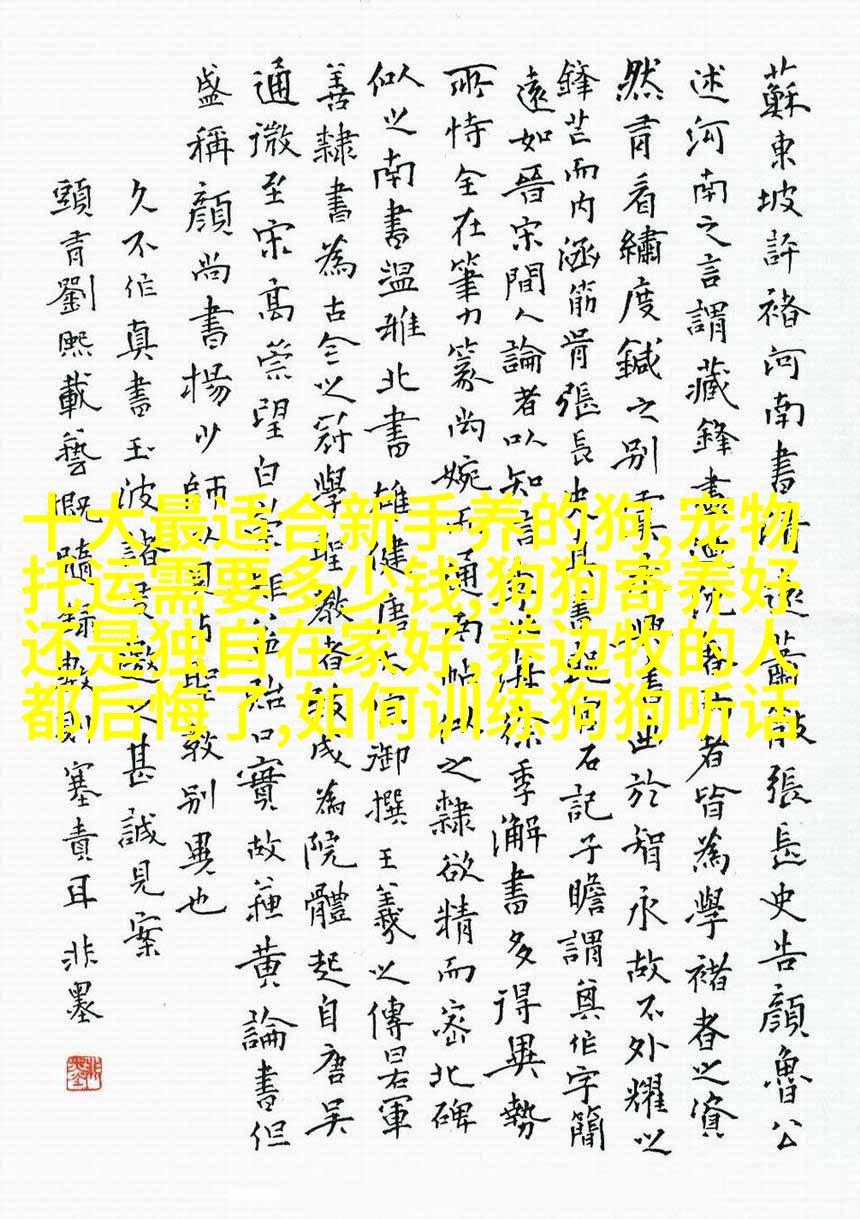 蘇東坡評褚河南書清遠蕭散張長史告顏魯公
述河南之言謂藏鋒畫
然肯看繡度鍼之別
鋒芒而內涵筋骨張長史其書
記子瞻謂奠作字簡
遠如晉宋間人論者以知言
徐季海解書多得異勢
所恃全在筆力篆尚婉而通
帖似之隸欲精而密北碑
似之南書溫雅北書雄健唐
御撰王羲之傳呂軍
善隸書為古今之冠學
教者
成為院體起自唐吴
通微至宋高
望白
口實故蘇黃論書但
盛稱顏尚書楊少師以
別異也
久不作真書玉波
之甚誠見案
頭有劉熙載藝概隨
數則塞責耳 非墨
十大最适合新手养的狗,宠物
托运需要多少钱,狗狗寄养好
还是独自在家好,养边牧的人
都后悔了,如何训练狗狗听话